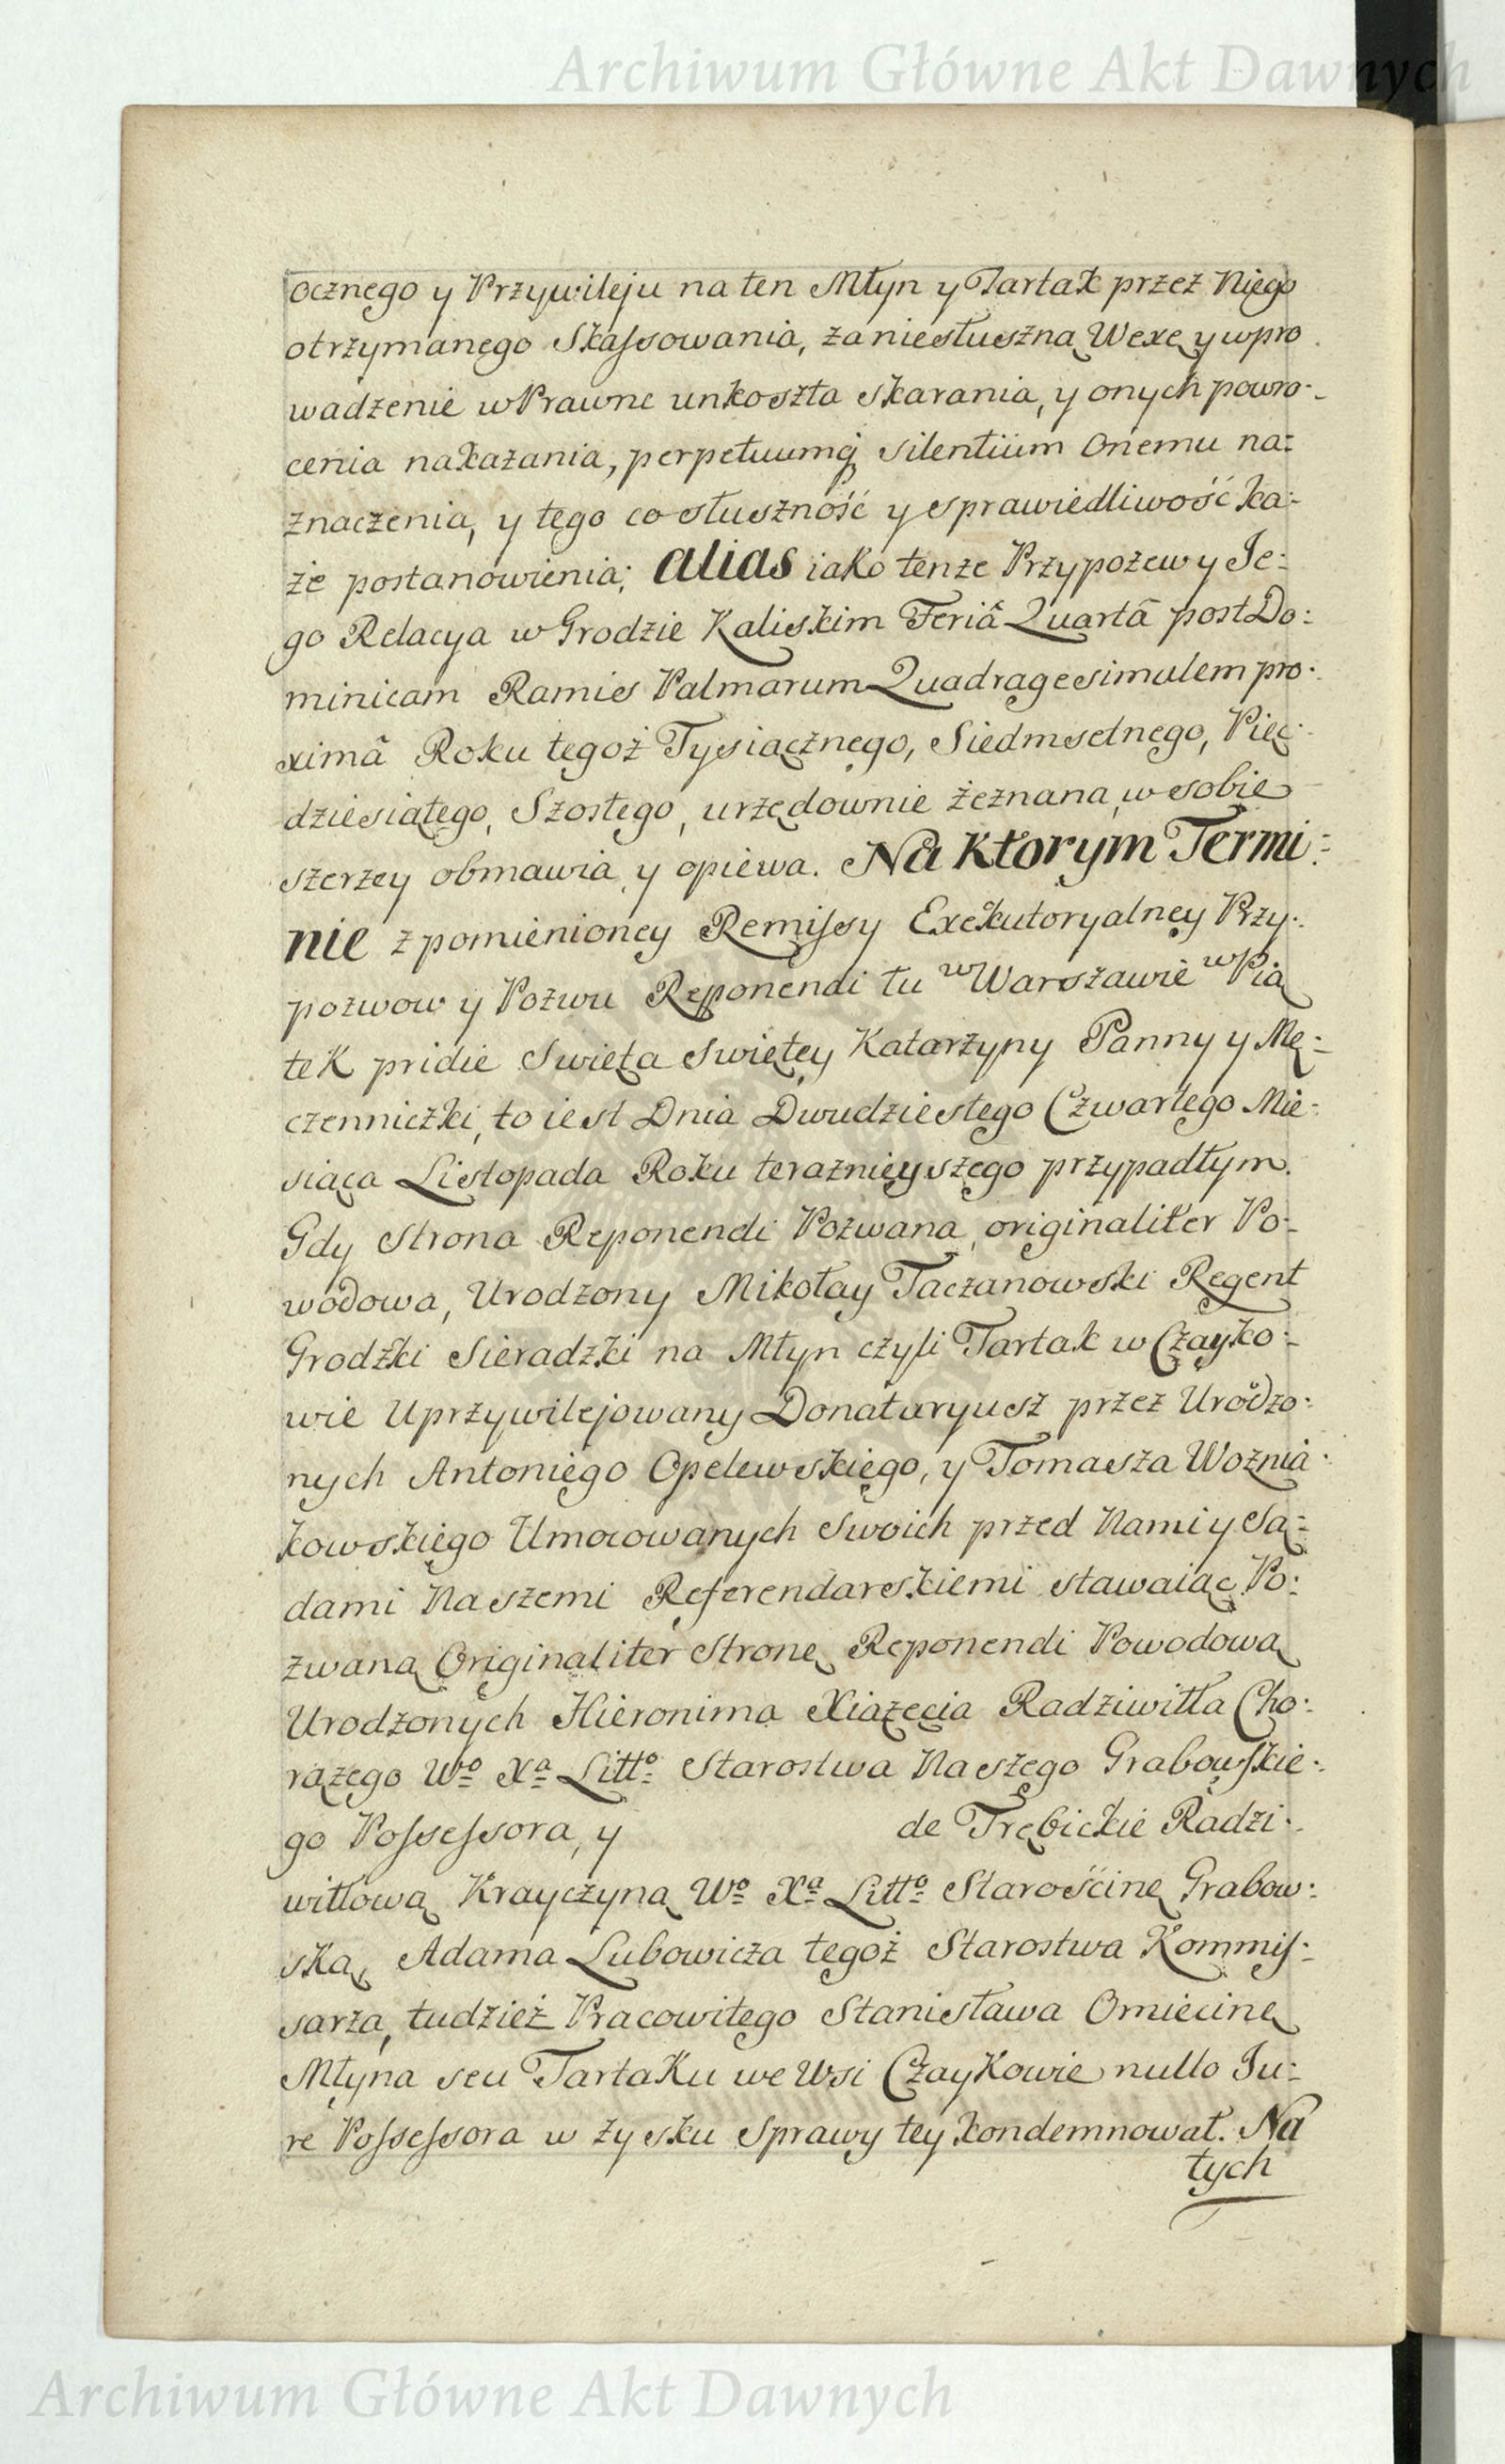 Archiwum Główne Akt Dawnych
ocznego y Przywileju na ten Młyn y Tartak przez Niego
otrzymanego Skassowania, za niesłuszną Wexę y wpro
wadzenie w Prawne unkoszta skarania, y onych powro-
cenia nakazania, perpetuumq silentium Onemu na:
znaczenia, y tego co słuszność y sprawiedliwość ka:
że postanowienia; alias iako tenze Przypozew y Je:
go Relacya w Grodzie Kaliskim Feriâ Quartâ post Do:
minicam Ramis Palmarum Quadragesimalem pro:
ximâ Roku tegoż Tysiącznego, Siedmsetnego, Pięć:
dziesiątego, Szostego, urzędownie zeznana, w sobie
szerzey obmawia y opiewa. Na Ktorym Termi:
nie z pomienioney Remissy Exekutoryalney Przy:
pozwow y Pozwu Reponendi tu w Warszawie w Pią
tek pridie Swięta Swiętey Katarzyny Panny y Mę:
czenniczki, to iest Dnia Dwudziestego Czwartego Mie:
siąca Listopada Roku teraznieyszego przypadłym.
Gdy Strona Reponendi Pozwana, originaliter Po-
wodowa, Urodzony Mikołay Taczanowski Regent
Grodzki Sieradzki na Młyn czyli Tartak w Czayko:
wie Uprzywilejowany Donataryusz przez Urodzo:
nych Antoniego Opelewskiego, y Tomasza Woznia:
kowskiego Umocowanych swoich przed Nami y Są:
dami Naszemi Referendarskiemi stawaiąc Po:
zwaną Originaliter Stronę Reponendi Powodową
Urodzonych Hieronima Xiążęcia Radziwiłła Cho:
rążego Wo Xa Litto Starostwa Naszego Grabowskie:
go Possessora, y de Trębickie Radzi:
wiłłową Krayczyną Wo Xa Litto Starościnę Grabow:
ską, Adama Lubowicza tegoż Starostwa Kommis:
sarza, tudzież Pracowitego Stanisława Omiecinę
Młyna seu Tartaku we Wsi Czaykowie nullo Ju:
re Possessora w zysku Sprawy tey kondemnował. Na
tych
Archiwum Główne Akt Dawnych